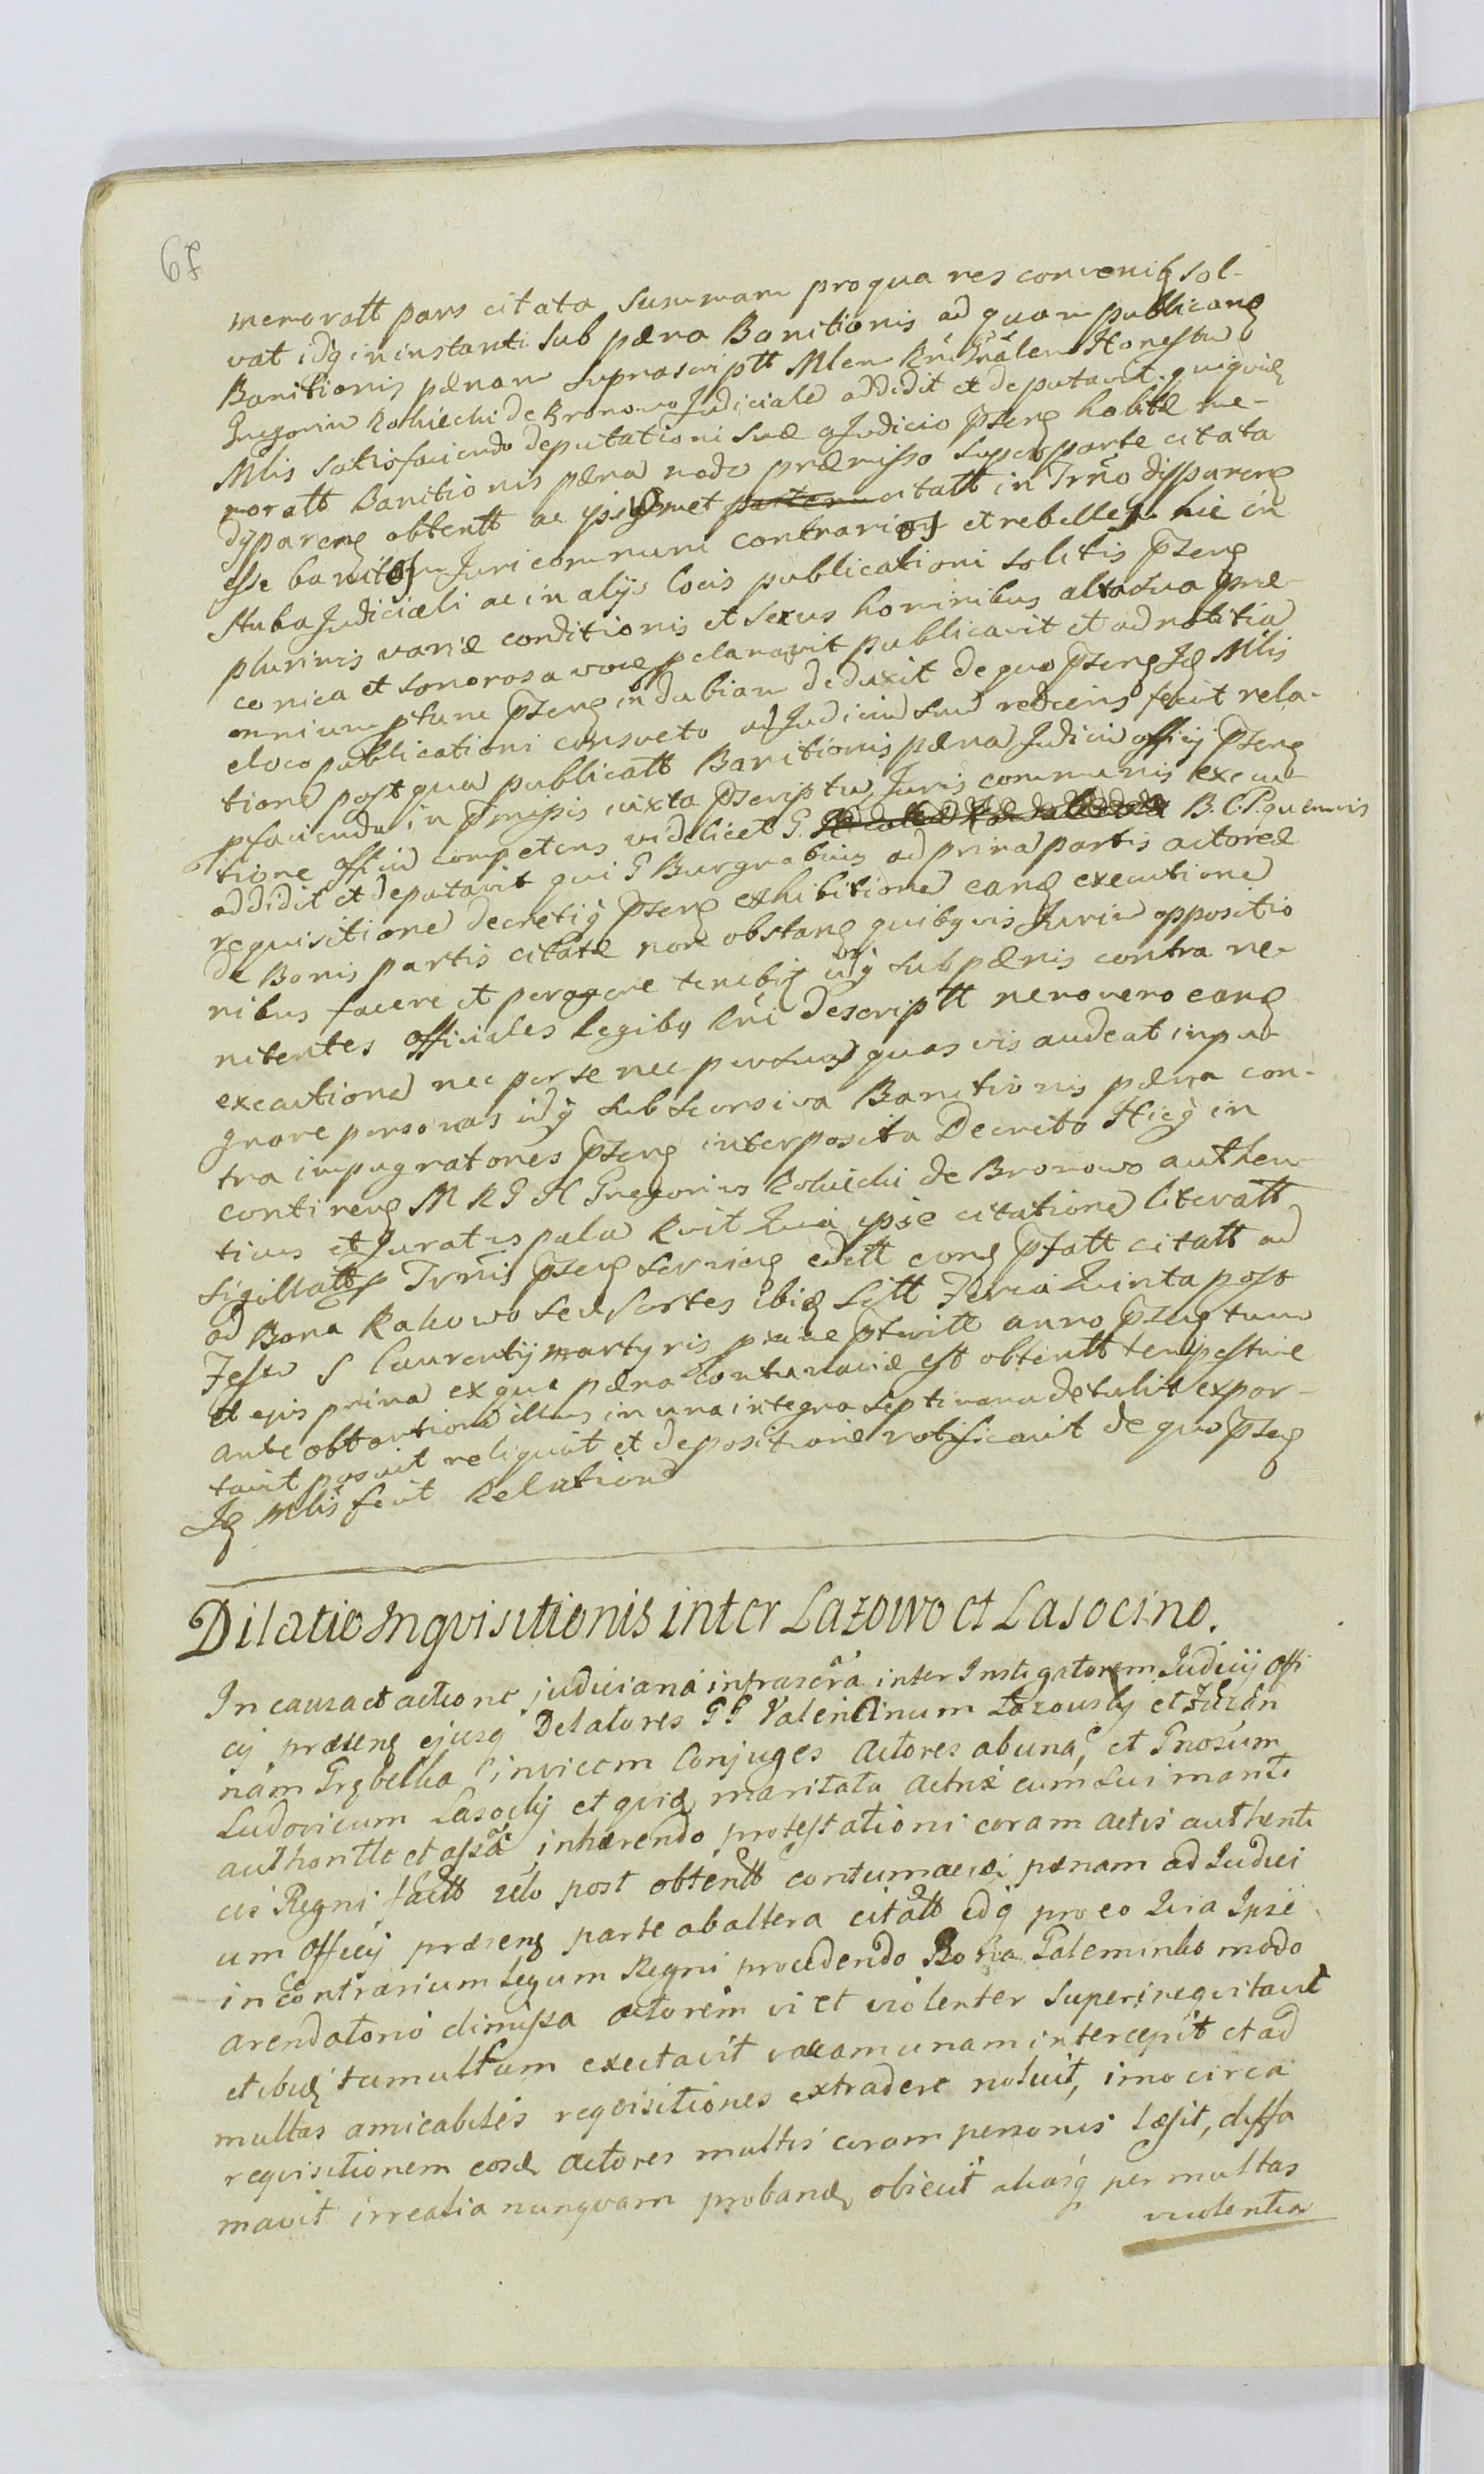 68
memoratt pars citata summam pro qua res convenibȝ sol-
vat idqȝ in instanti sub pæna Banitionis ad quam publicanȩ
Banitionis pænam suprascriptt Mlem Rñi Gñalem Honestu
Gregoriu Rokicki de Bronowo Judiciale addidit et deputavit, quiquid
Mlis satisfaciendo deputationi suæ a Judicio pzenȩ habitæ me-
moratt Banitionis pæna modo præmisso super parte citata
dyparenȩ obtentt ac ipsosmet citatt in Trño disparenȩ
esse banitos Juri communi contrarios et rebelles hic in
stuba Judiciali ac in alijs locis publicationi solitis pzenȩ
plurimis variæ conditionis et sexus hominibus alta sua præ-
conica et sonorosa voce pclamavit publicavit et ad notitia
omnium ptunc pzenȩ indubiam deduxit de quo pzenȩ Jȩ Mlis
eloco publicationi consueto ad Judiciu suu rediens fecit rela-
tione post qua publicatt Banitionis pæna Judiciu officij pzenȩ
pfaciendu in pmissis iuxta pscriptu Juris communis execu-
tione officiu competens videlicet G. B. C. P. quemvis
addidit et deputavit qui G Burgrabius ad prima partis actoreæ
requisitione decretiqȝ pzenȩ exhibitione eanȩ executione
de Bonis partis citatæ non obstanȩ quibqȝvis Juriu oppositio
nibus facere et peragere tenebiȝ idqȝ sub pænis contra re-
nitentes officiales legibqȝ Rñi descriptt nemo vero eanȩ
executione nec per se nec per suas quasvis audeat impu-
gnare personas idqȝ sub secursiva Banitionis pæna con-
tra impugnatores pzenȩ interposita Decreto Hicqȝ in
continenȩ M R G H Gregorius Rokicki de Bronowo authen
ticus et Juratus pala Rvit Quia ipse citatione literatt
sigillatt Trñis pzenȩ servienȩ edtt conȩ pfatt citatt ad
ad Bona Rakowo seu sortes ibiȩ sitt Feria Quinta post
Festu S Laurentij martyris pxime pteritt anno pzenȩ tum
et ejus prima ex qua pæna Contumaciæ est obtentt tempestive
ante obtentione illius in una integra septimana detulit expor-
tavit posuit reliquit et depositione notificavit de quo pzenȩ
Jȩ Mlis fecit Relatione
Dilatio Inqvisitionis inter Lazowo et Lasocino.
In causa et actione judiciana infrascra inter Instigatorem Judicij Offi
cij præsenȩ ejusqȝ Delatores GG Valentinum Lazowsky et Zuzan
nam Grębecka invicem Conjuges Actores ab una, et Gnosum
Ludovicum Lasocky et qviȩ maritata Actrix cum sui mariti
authoritte et assa inhærendo protestationi coram actis authenti
cis Regni factt zelo post obtentt contumaciæ pænam ad Judici
um Officij præsenȩ parte ab altera citatt idqȝ pro eo Quia Ipse
in contrarium legum Regni procedendo Bona Goleminko modo
arendatorio dimissa actorem vi et violenter superineqvitavit
et ibidȩ tumultum excitavit vaccam unam intercepit et ad
multas amicabiles reqvisitiones extradere noluit, imo circa
reqvisitionem eosdȩ Actores multis coram personis læsit, diffa
mavit irrealia nunqvam probandȩ obiecit aliasqȝ per multas
violentia